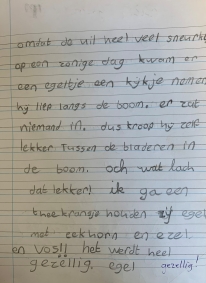 omdat de uil heel veel sneurkt
op een zonige dag kwam er
een egeltje een kijkje nemen
hy liep langs de boom. er zat
niemand in. dus kroop hy zelf
lekker tussen de bladeren in
de boom. och wat lach
dat lekker! ik ga een
thee kransje houden zij egel
met eekhorn en ezel
en vos!! het werdt heel
gezellig. egel gezellig!